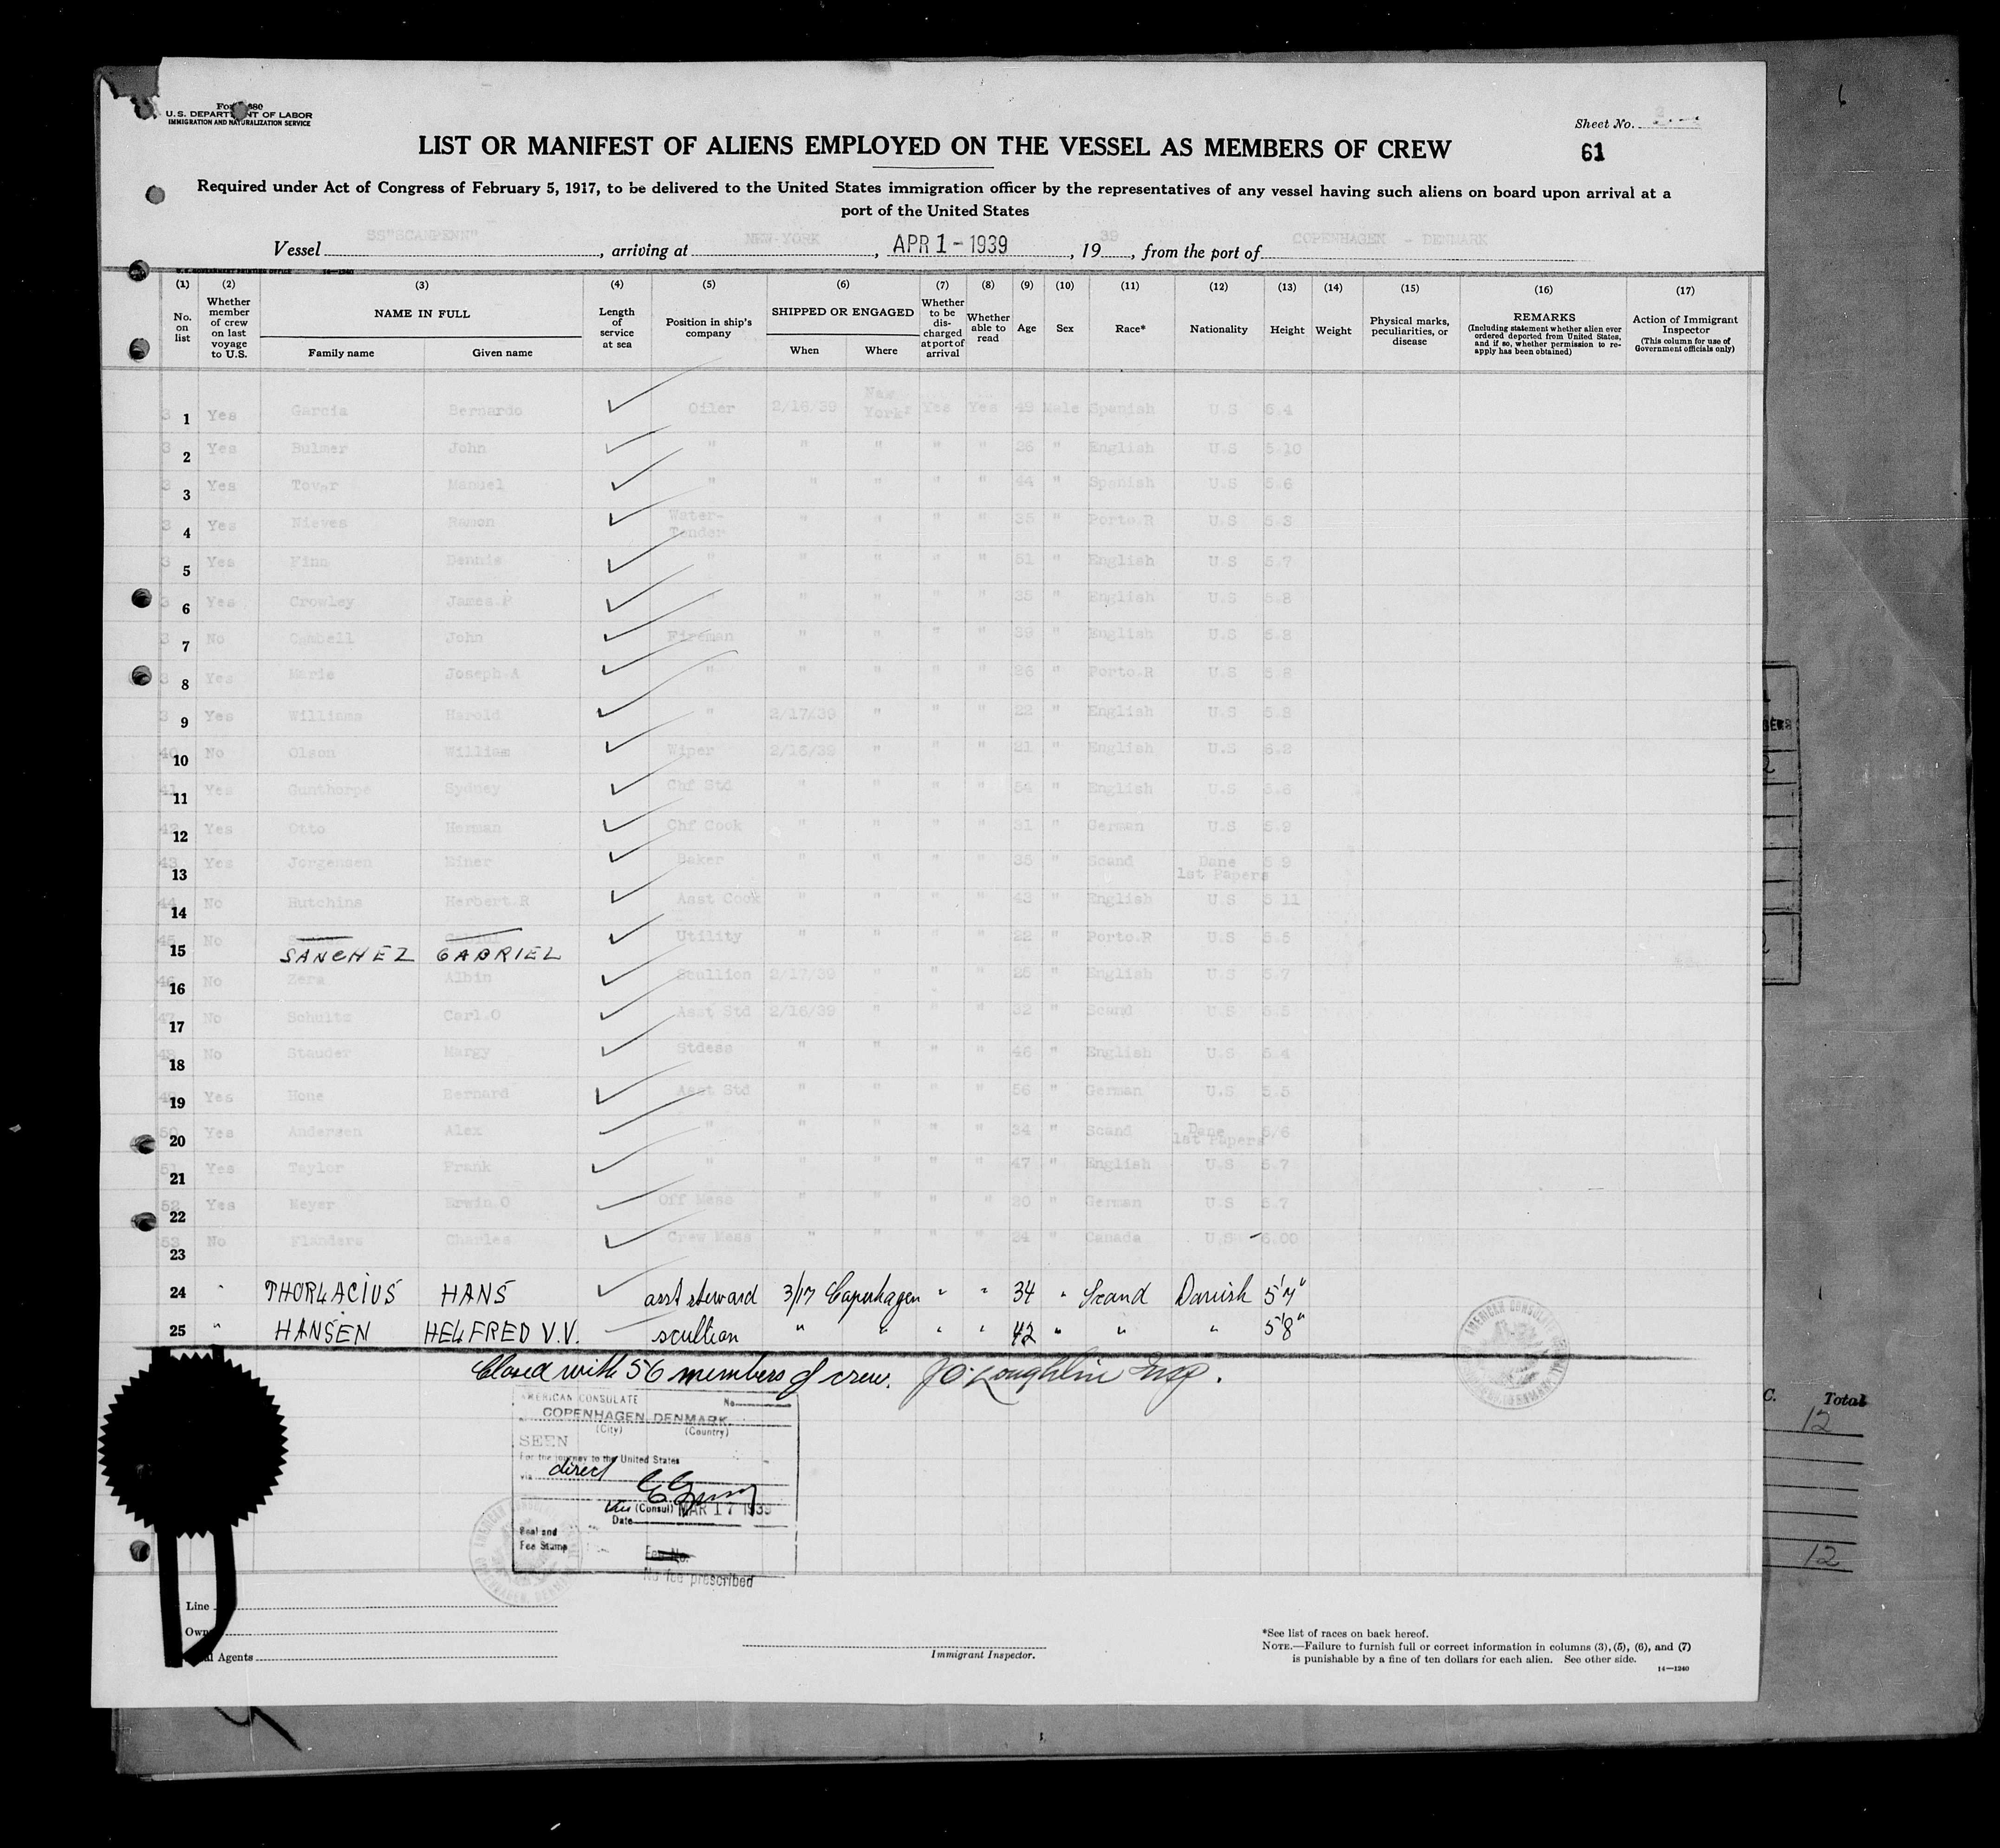 Form 680
U.S. DEPARTMENT OF LABOR
IMMIGRATION AND NATURALIZATION SERVICE
Sheet No.
LIST OR MANIFEST OF ALIENS EMPLOYED ON THE VESSEL AS MEMBERS OF CREW
61
Required under Act of Congress of February 5, 1917, to be delivered to the United States immigration officer by the representatives of any vessel having such aliens on board upon arrival at a
port of the United States
Vessel SS"SCANPENN", arriving at NEW-YORK, APR 1 - 1939, 19 39, from the port of COPENHAGEN - DENMARK
U. S. GOVERNMENT PRINTING OFFICE 14—1240
(1) (2) (3) (4) (5) (6) (7) (8) (9) (10) (11) (12) (13) (14) (15) (16) (17)
No. on list
Whether member of crew on last voyage to U.S.
NAME IN FULL
Family name Given name
Length of service at sea
Position in ship's company
SHIPPED OR ENGAGED
When Where
Whether to be discharged at port of arrival
Whether able to read
Age
Sex
Race*
Nationality
Height
Weight
Physical marks, peculiarities, or disease
REMARKS
(Including statement whether alien ever ordered deported from United States, and if so, whether permission to re-apply has been obtained)
Action of Immigrant Inspector
(This column for use of Government officials only)
1 Yes Garcia Bernardo Oiler 2/16/39 New York Yes Yes 49 Male Spanish U.S 5.4
2 Yes Bulmer John " " " " " 26 " English U.S 5 10
3 Yes Tovar Manuel " " " " " 44 " Spanish U.S 5.6
4 Yes Nieves Ramon Water-Tender " " " " 35 " Porto.R U.S 5.3
5 Yes Finn Dennis " " " " " 51 " English U.S 5.7
6 Yes Crowley James.P " " " " 35 " English U.S 5.8
7 No Cambell John Fireman " " " " 39 " English U.S 5.8
8 Yes Marie Joseph.A " " " " " 26 " Porto.R U.S 5.8
9 Yes Williams Harold " 2/17/39 " " " 22 " English U.S 5.8
40 10 No Olson William Wiper 2/16/39 " " " 21 " English U.S 6.2
41 11 Yes Gunthorpe Sydney Chf Std " " " " 54 " English U.S 5.6
42 12 Yes Otto Herman Chf Cook " " " " 31 " German U.S 5.9
43 13 Yes Jorgensen Einer Baker " " " " 35 " Scand Dane 1st Papers 5 9
44 14 No Hutchins Herbert.R Asst Cook " " " " 43 " English U.S 5.11
45 15 No SANCHEZ GABRIEL Utility " " " " 22 " Porto.R U.S 5.5
46 16 No Zera Albin Scullion 2/17/39 " " " 25 " English U.S 5.7
47 17 No Schultz Carl.O Asst Std 2/16/39 " " " 32 " Scand U.S 5.5
48 18 No Stauder Margy Stdess " " " " 46 " English U.S 5.4
49 19 Yes Hone Bernard Asst Std " " " " 56 " German U.S 5.5
50 20 Yes Andersen Alex " " " " " 34 " Scand Dane 1st Papers 5/6
51 21 Yes Taylor Frank " " " " " 47 " English U.S 5.7
52 22 Yes Meyer Erwin.O Off Mess " " " " 20 " German U.S 5.7
53 23 No Flanders Charles Crew Mess " " " " 24 " Canada U.S 6.00
24 " THORLACIUS HANS asst steward 3/17 Copenhagen " " 34 " Scand Danish 5'7"
25 " HANSEN HELFRED V.V. scullion " " " " 42 " " " 5'8"
Closed with 56 members of crew. J O'Loughlin Insp.
AMERICAN CONSULATE No.
COPENHAGEN, DENMARK.
(City) (Country)
SEEN
For the journey to the United States
via direct
Vice (Consul) MAR 17 1939
Date
Seal and
Fee Stamp
Fee No.
No fee prescribed
Line
Agents
Immigrant Inspector.
*See list of races on back hereof.
NOTE.—Failure to furnish full or correct information in columns (3), (5), (6), and (7)
is punishable by a fine of ten dollars for each alien. See other side.
14—1240
C. Total
12
12